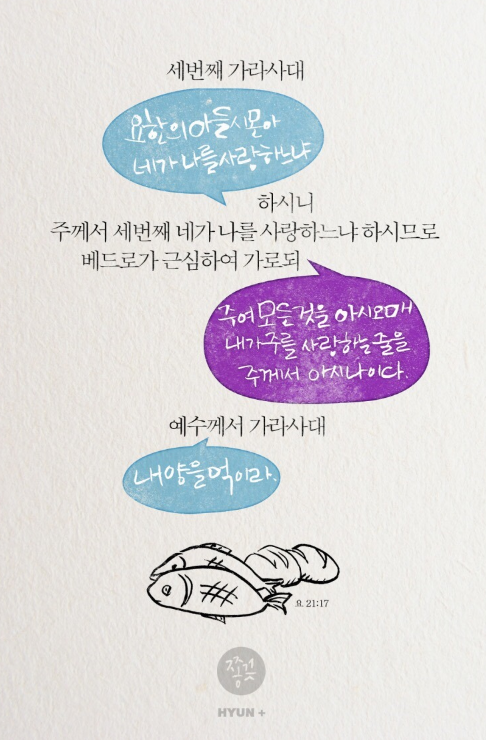 세번째 가라사대
요한의아들시몬아
네가 나를사랑하느냐
하시니
주께서 세번째 네가 나를 사랑하느냐 하시므로
베드로가 근심하여 가로되
주여 모든것을 아시오매
내가주를 사랑하는줄을
주께서 아시나이다.
예수께서 가라사대
내양을먹이라.
요. 21:17
HYUN +